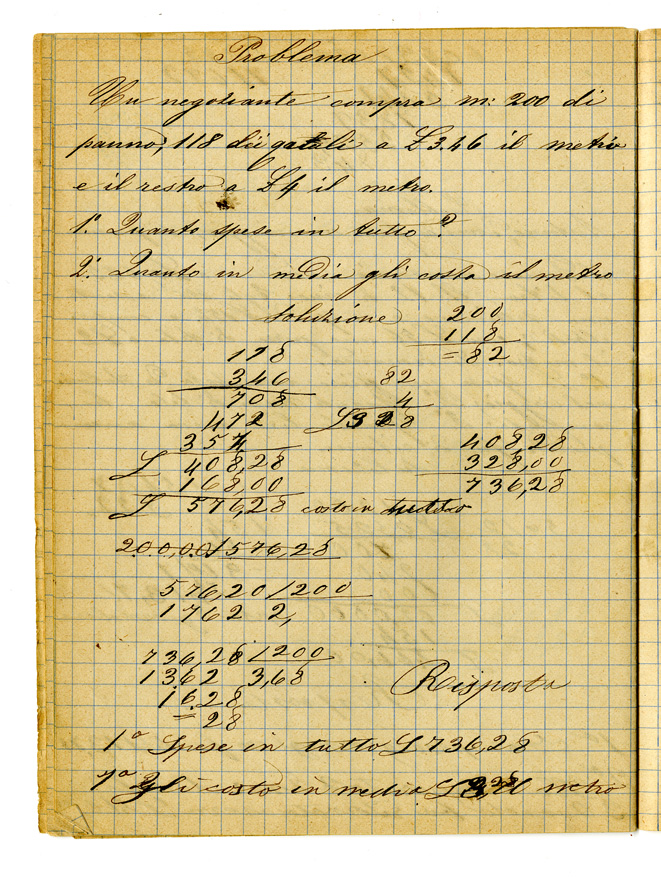 Problema
Un negoziante compra m: 200 di
panno; 118 dei quali a £3.46 il metro
e il resto a £4 il metro.
1.° Quanto spese in tutto?
2.° Quanto in media gli costa il metro
soluzione 200
118
= 82
118
3,46
708
472
354
£ 408,28
168 00
£ 576,28 costo in tutto
82
4
£ 328
408,28
328,00
736,28
20.0,0.0/576,28
576,20/200
1762 2,
736,28/200
1362 3,68
16.28
= 28
Risposta
1ª Spese in tutto £736,28
gli costo in media £ il metro